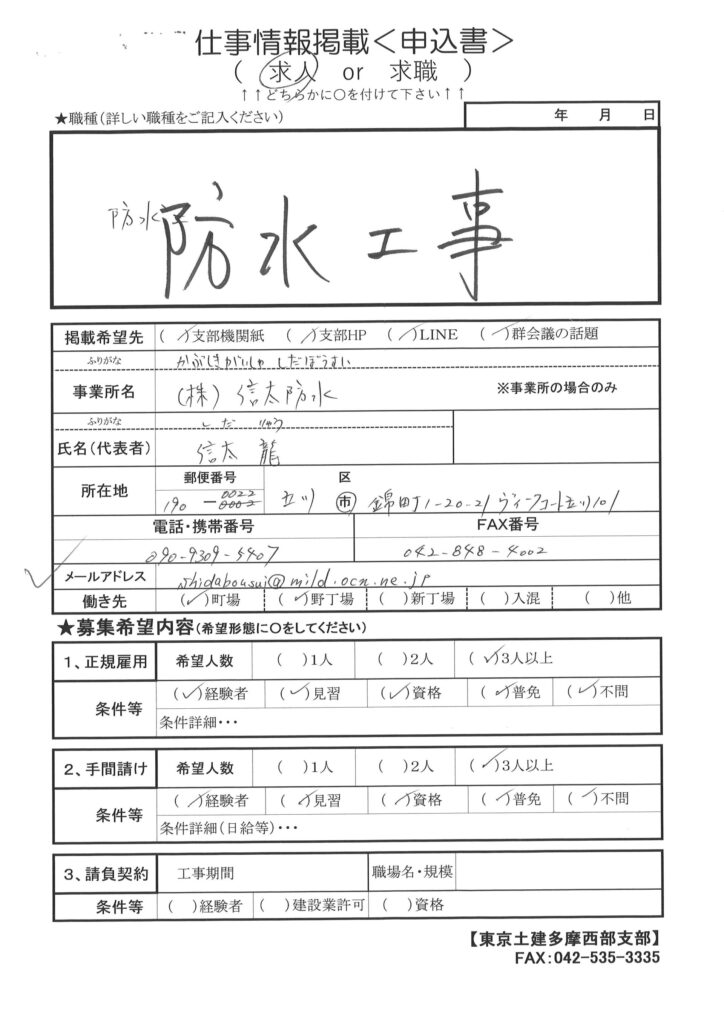 仕事情報掲載＜申込書＞
（ 求人 or 求職 ）
↑↑どちらかに○を付けて下さい↑↑
★職種（詳しい職種をご記入ください）
年 月 日
防水
防水工事
掲載希望先 (✓)支部機関紙 (✓)支部HP (✓)LINE (✓)群会議の話題
ふりがな かぶしきがいしゃ しだぼうすい
事業所名 (株)信太防水 ※事業所の場合のみ
ふりがな しだ りゅう
氏名（代表者） 信太 龍
所在地 郵便番号 区
190 － 0022 立川 市 錦町1-20-21 ヴィークコート立川101
0002
電話・携帯番号 FAX番号
090-9309-5407 042-848-4002
✓
メールアドレス shidabousui@mild.ocn.ne.jp
働き先 (✓)町場 (✓)野丁場 ( )新丁場 ( )入混 ( )他
★募集希望内容（希望形態に○をしてください）
1、正規雇用 希望人数 ( )1人 ( )2人 (✓)3人以上
条件等 (✓)経験者 (✓)見習 (✓)資格 (✓)普免 (✓)不問
条件詳細・・・
2、手間請け 希望人数 ( )1人 ( )2人 (✓)3人以上
条件等 (✓)経験者 (✓)見習 (✓)資格 (✓)普免 (✓)不問
条件詳細（日給等）・・・
3、請負契約 工事期間 職場名・規模
条件等 ( )経験者 ( )建設業許可 ( )資格
【東京土建多摩西部支部】
FAX：042-535-3335